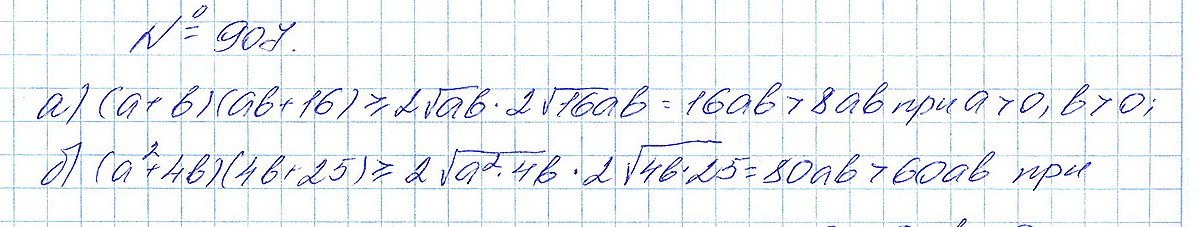 № 907.
а) (a+b)(ab+16) ≥ 2√ab · 2√16ab = 16ab > 8ab при a > 0, b > 0;
б) (a²+4b)(4b+25) ≥ 2√a²·4b · 2√4b·25 = 80ab > 60ab при